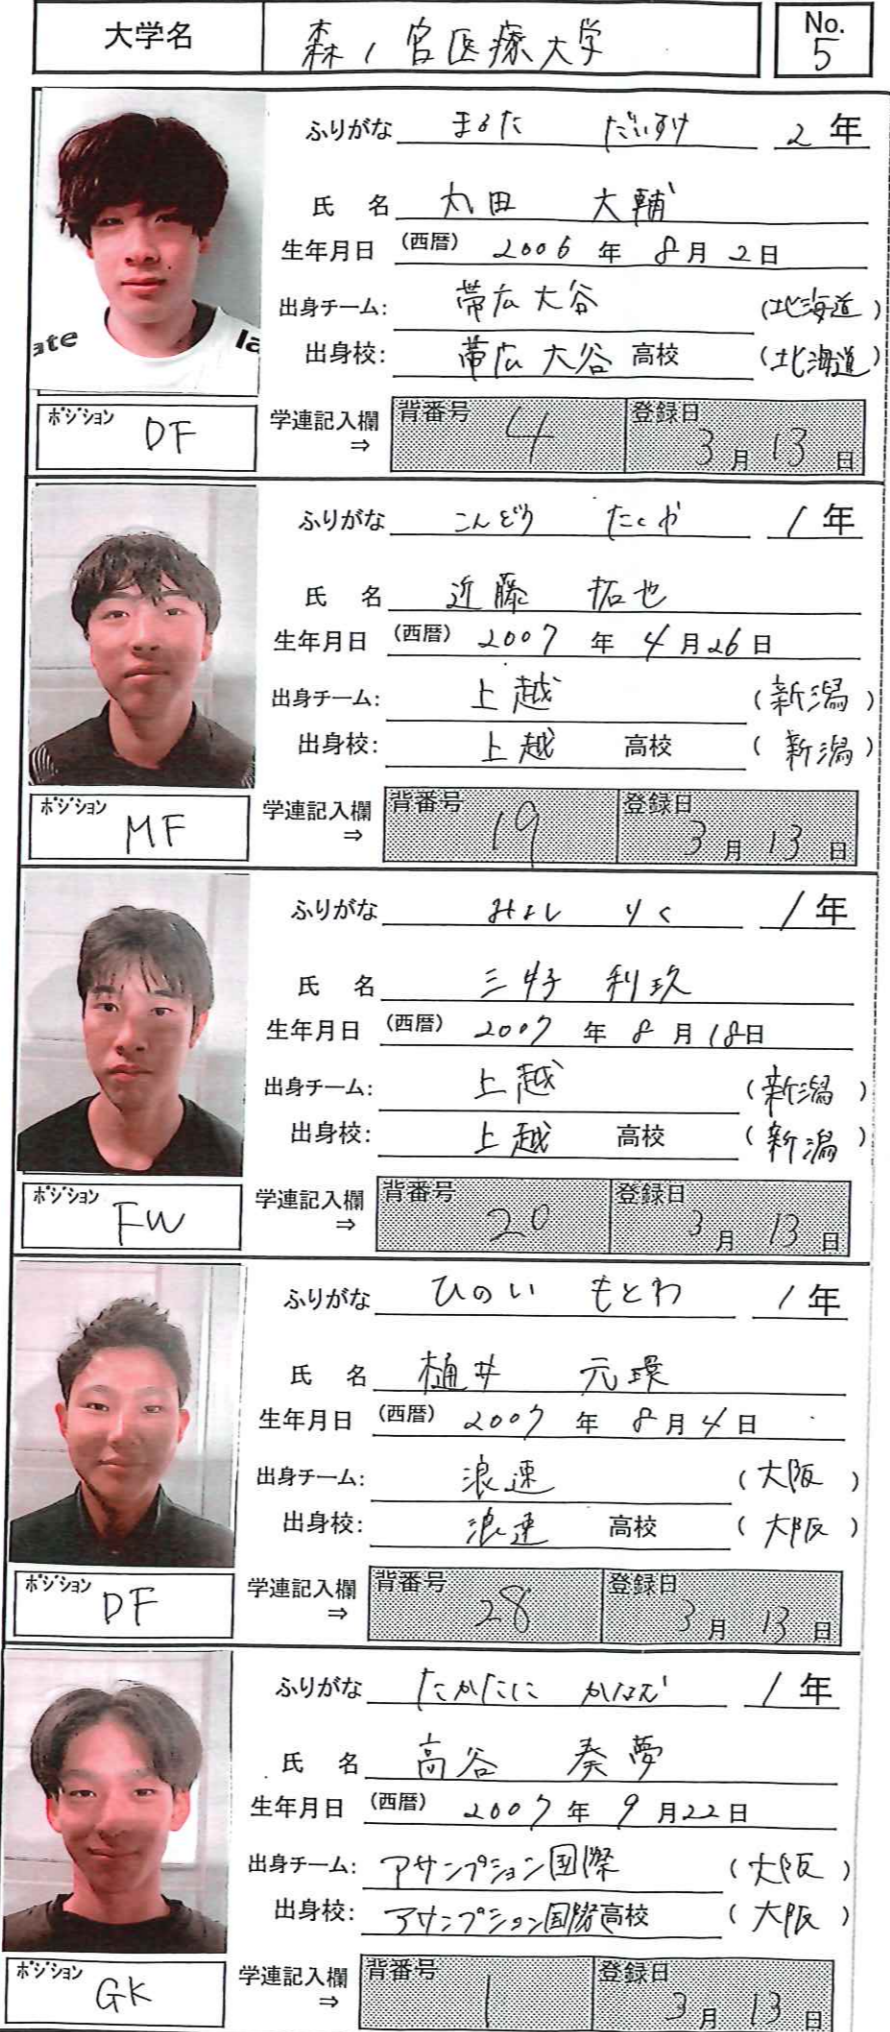 大学名 森ノ宮医療大学 No. 5
ふりがな まるた だいすけ 2 年
氏 名 丸田 大輔
生年月日 (西暦) 2006 年 8 月 2 日
出身チーム: 帯広大谷 (北海道)
出身校: 帯広大谷 高校 (北海道)
ate la
ポジション DF 学連記入欄 ⇒ 背番号 4 登録日 3 月 13 日
ふりがな こんどう たくや 1 年
氏 名 近藤 拓也
生年月日 (西暦) 2007 年 4 月 26 日
出身チーム: 上越 (新潟)
出身校: 上越 高校 (新潟)
ポジション MF 学連記入欄 ⇒ 背番号 19 登録日 3 月 13 日
ふりがな みよし りく 1 年
氏 名 三好 利玖
生年月日 (西暦) 2007 年 8 月 18 日
出身チーム: 上越 (新潟)
出身校: 上越 高校 (新潟)
ポジション FW 学連記入欄 ⇒ 背番号 20 登録日 3 月 13 日
ふりがな ひのい もとわ 1 年
氏 名 樋井 元環
生年月日 (西暦) 2007 年 8 月 4 日
出身チーム: 浪速 (大阪)
出身校: 浪速 高校 (大阪)
ポジション DF 学連記入欄 ⇒ 背番号 28 登録日 3 月 13 日
ふりがな たかたに かなむ 1 年
氏 名 高谷 奏夢
生年月日 (西暦) 2007 年 9 月 22 日
出身チーム: アサンプション国際 (大阪)
出身校: アサンプション国際 高校 (大阪)
ポジション GK 学連記入欄 ⇒ 背番号 1 登録日 3 月 13 日